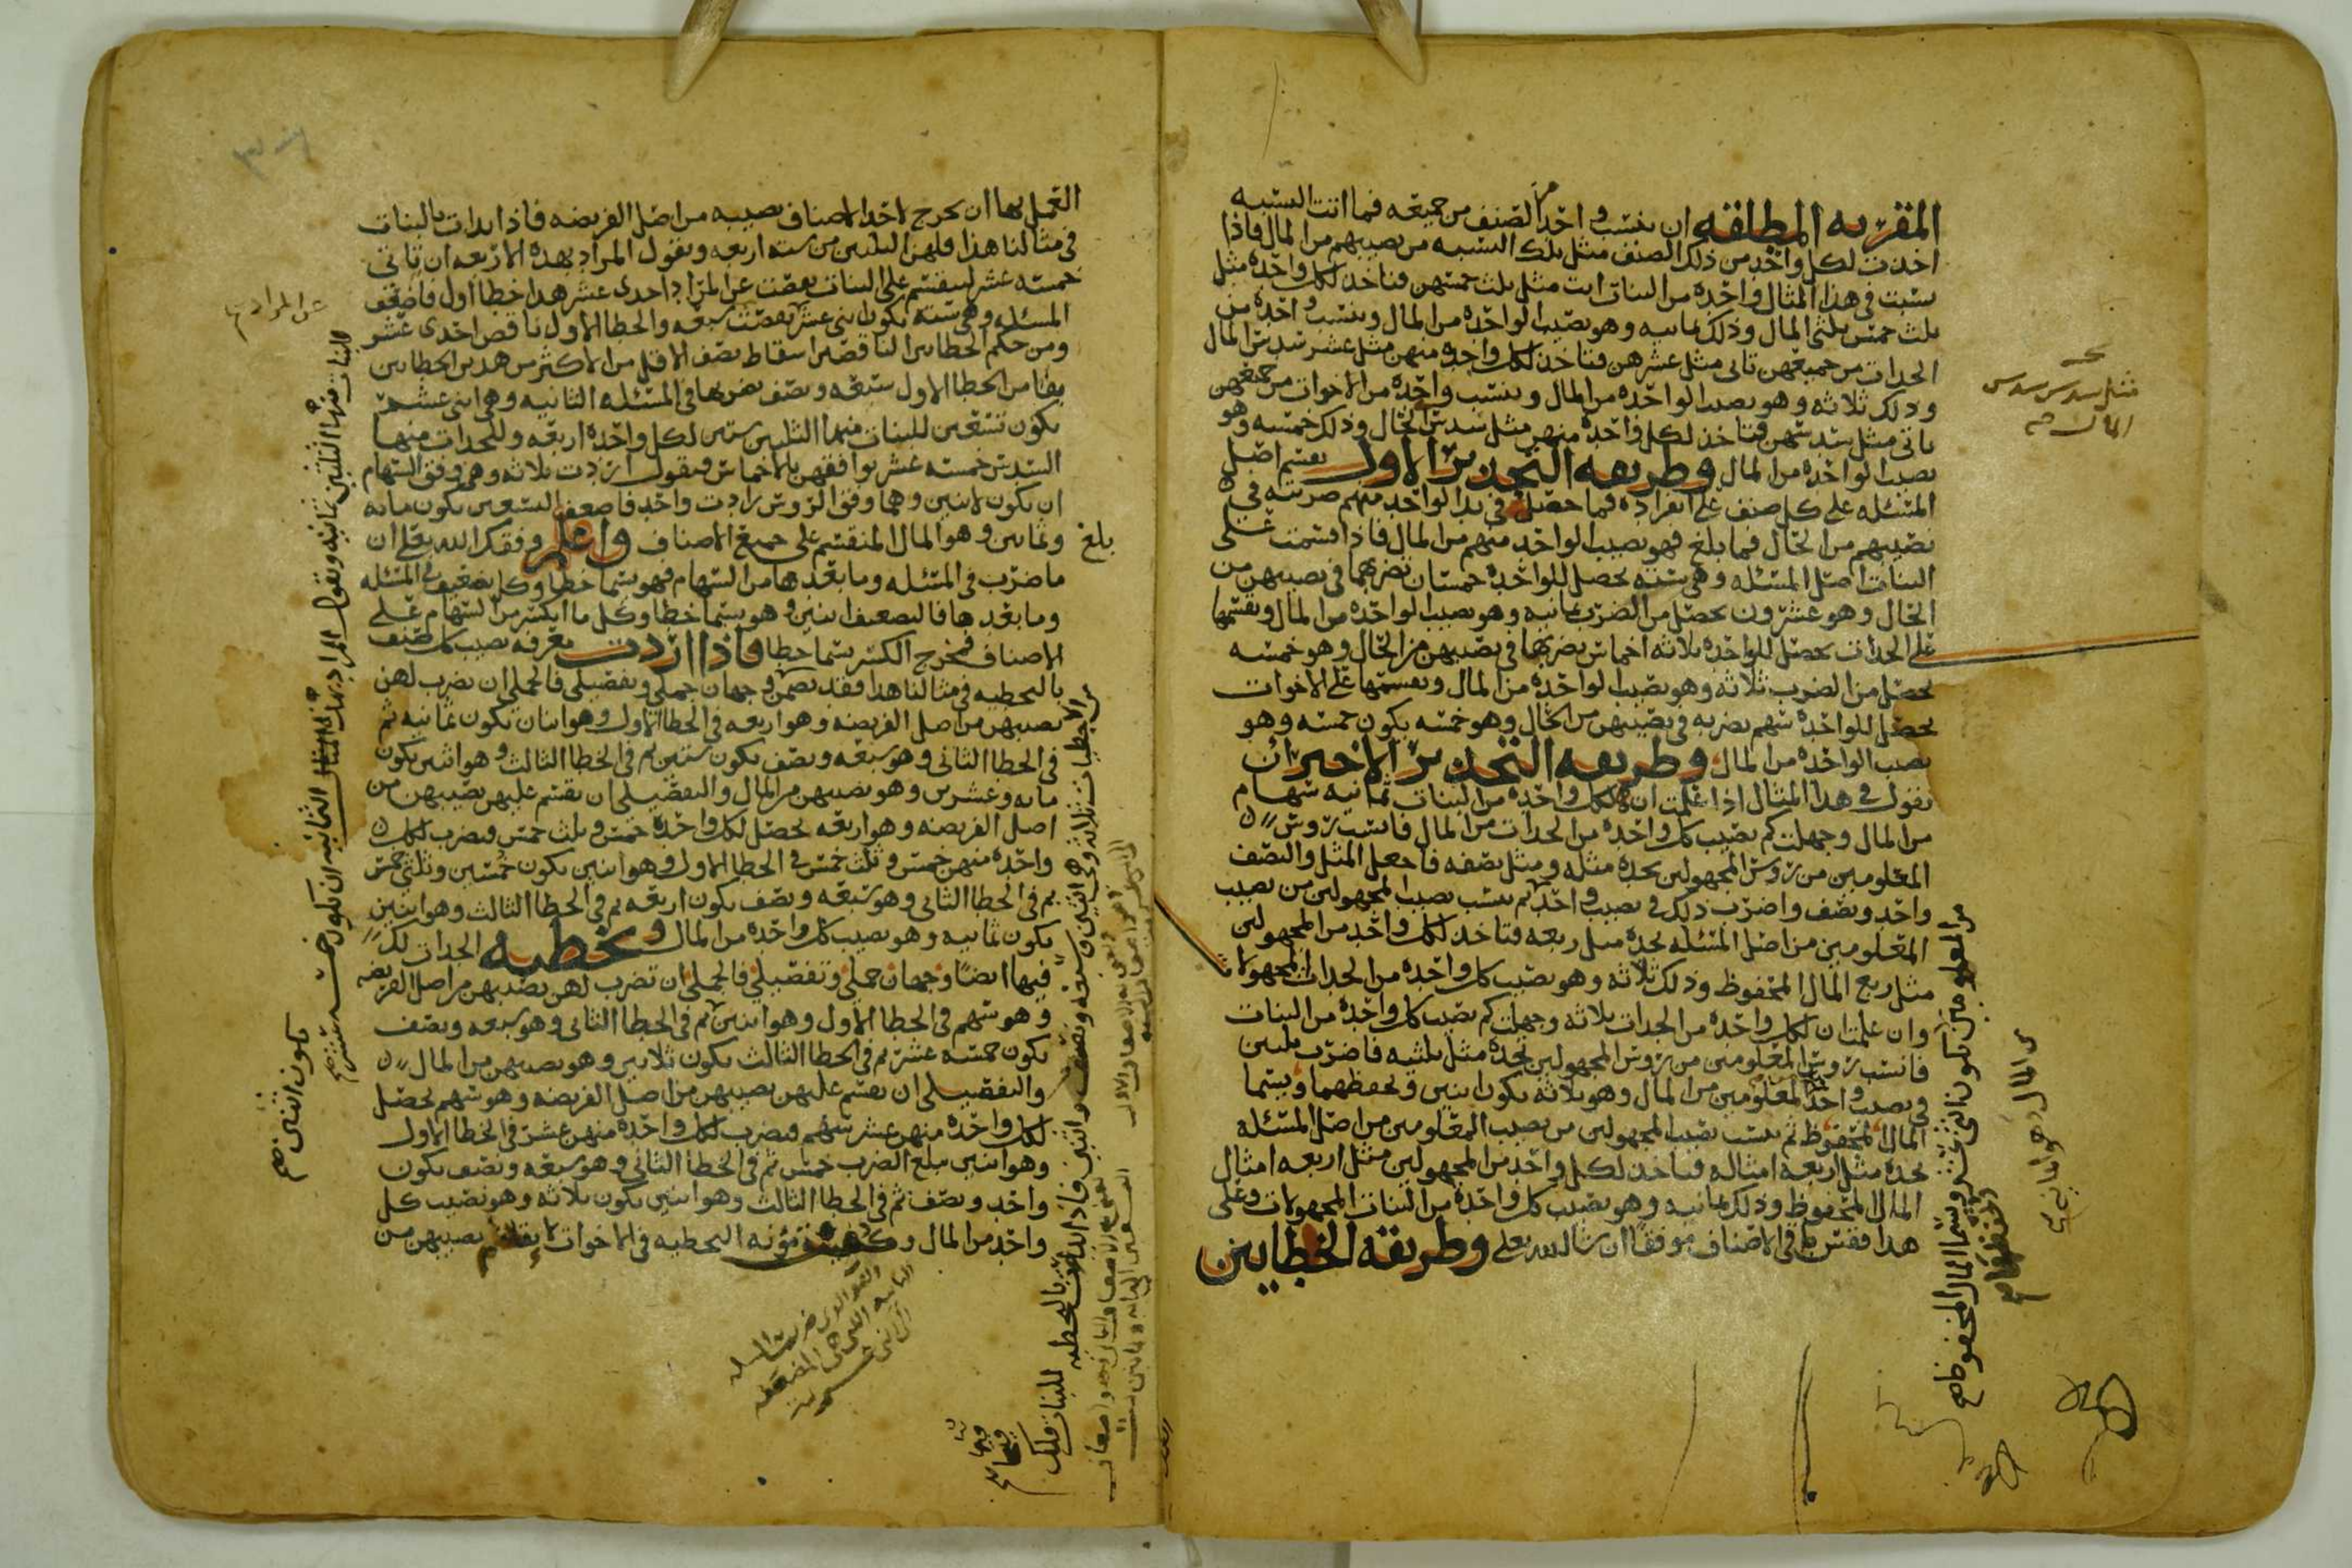 المقربه المطلقه ان تنسب واحد الصنف من جميعه فما اتت النسبه
اخذت لكل واحد من ذلك الصنف مثل تلك النسبه من نصيبهم من المال فاذا
نسبت في هذا المثال واحده من البنات اتت مثل ثلث خمسهن فتاخذ لكل واحده مثل
ثلث خمس ثلثي المال وذلك ثمانيه وهو نصيب الواحده من المال وتنسب واحده من
الجدات من جميعهن تاتي مثل عشرهن فتاخذ لكل واحده منهن مثل عشر سدس المال
وذلك ثلاثه وهو نصيب الواحده من المال وتنسب واحده من الاخوات من جميعهن
تاتي مثل سدسهن فتاخذ لكل واحده منهن مثل سدس الحال وذلك خمسه وهو
نصيب الواحده من المال وطريقه النجدين الاول تقسم اصل
المسئله على كل صنف على انفراده فما حصل في يد الواحد منهم ضربته في
نصيبهم من الحال فما بلغ فهو نصيب الواحد منهم من المال فاذا قسمت على
البنات اصل المسئله وهي سته يحصل للواحده خمسان تضربهما في نصيبهن من
الحال وهو عشرون يحصل من الضرب ثمانيه وهو نصيب الواحده من المال وتقسمها
على الجدات يحصل للواحده ثلاثه اخماس تضربها في نصيبهن من الحال وهو خمسه
يحصل من الضرب ثلاثه وهو نصيب الواحده من المال وتقسمها على الاخوات
يحصل للواحده سهم تضربه في نصيبهن من الحال وهو خمسه يكون خمسه وهو
نصيب الواحده من المال وطريقه النجدين الاخير ان
تقول في هذا المثال اذا علمت ان لكل واحده من البنات ثمانيه سهام
من المال وجهلت كم نصيب كل واحده من الجدات من المال فانسب رؤس
المعلومين من رؤس المجهولين تجده مثله ومثل نصفه فاجعل المثل والنصف
واحد ونصف واضرب ذلك في نصيب واحد ثم تنسب نصيب المجهولين من نصيب
المعلومين من اصل المسئله تجده مثل ربعه فتاخذ لكل واحد من المجهولين
مثل ربع المال المحفوظ وذلك ثلاثه وهو نصيب كل واحده من الجدات المجهولات
وان علمت ان لكل واحده من الجدات ثلاثه وجهلت كم نصيب كل واحده من البنات
فانسب رؤس المعلومين من رؤس المجهولين تجده مثل ثلثيه فاضرب ثلثين
في نصيب واحد المعلومين من المال وهو ثلاثه يكون اثنين وتحفظهما ويسما
المال المحفوظ ثم تنسب نصيب المجهولين من نصيب المعلومين من اصل المسئله
تجده مثل اربعه امثاله فتاخذ لكل واحد من المجهولين مثل اربعه امثال
المال المحفوظ وذلك ثمانيه وهو نصيب كل واحده من البنات المجهولات وعلى
هذا فقس باقي الاصناف موفقا ان شا الله تعلى وطريقه الخطاين
مثل سدس سدس
المال
من المعلومين يكون اثني عشر ويسما المال المحفوظ
من المال وهو ثمانيه
العمل بها ان تخرج لاحد الاصناف نصيبه من اصل الفريضه فاذا بدات بالبنات
في مثالنا هذا فلهن الثلثين من سته اربعه وتقول المراد بهذه الاربعه ان تاتي
خمسه عشر لينقسم على البنات نقصت عن المراد احدى عشر هذا خطا اول فاضعف
المسئله وهي سته تكون اثني عشر نقصت سبعه والخطا الاول ناقص احدى عشر
ومن حكم الخطاين الناقصين اسقاط نصف الاقل من الاكثر من هذين الخطاين
بقا من الخطا الاول سبعه ونصف تضربها في المسئله الثانيه وهي اثني عشر
يكون تسعين للبنات منها الثلثين ستين لكل واحده اربعه وللجدات منها
السدس خمسه عشر توافقهن بالاخماس فتقول اردت ثلاثه وهي وفق السهام
ان تكون لاثنين وهما وفق الرؤس زادت واحد فاضعف التسعين يكون مايه
وثمانين وهو المال المنقسم على جميع الاصناف واعلم وفقك الله تعلى ان
بلغ
ما ضرب في المسئله وما بعدها من السهام فهو يسما خطا وكل تضعيف في المسئله
وما بعدها فالتضعيف اثنين وهو يسما خطا وكل ما انكسر من السهام على
الاصناف فمخرج الكسر يسما خطا فاذا اردت معرفه نصيب كل صنف
بالتخطيه في مثالنا هذا فقد تضمن وجهان جملي وتفصيلي فالجملي ان تضرب لهن
نصيبهن من اصل الفريضه وهو اربعه في الخطا الاول وهو اثنان تكون ثمانيه ثم
في الخطا الثاني وهو سبعه ونصف يكون ستين ثم في الخطا الثالث وهو اثنين يكون
مايه وعشرين وهو نصيبهن من المال والتفصيلي ان تقسم عليهن نصيبهن من
اصل الفريضه وهو اربعه يحصل لكل واحده خمس وثلث خمس فتضرب لكل
واحده منهن خمس وثلث خمس في الخطا الاول وهو اثنين يكون خمسين وثلثي خمس
ثم في الخطا الثاني وهو سبعه ونصف يكون اربعه ثم في الخطا الثالث وهو اثنين
يكون ثمانيه وهو نصيب كل واحده من المال وتخطيه الجدات لك
فيها ايضا وجهان جملي وتفصيلي فالجملي ان تضرب لهن نصيبهن من اصل الفريضه
وهو سهم في الخطا الاول وهو اثنين ثم في الخطا الثاني وهو سبعه ونصف
يكون خمسه عشر ثم في الخطا الثالث يكون ثلاثين وهو نصيبهن من المال
والتفصيلي ان تقسم عليهن نصيبهن من اصل الفريضه وهو سهم يحصل
لكل واحده منهن عشر سهم فتضرب لكل واحده منهن عشر في الخطا الاول
وهو اثنين مبلغ الضرب خمس ثم في الخطا الثاني وهو سبعه ونصف يكون
واحد ونصف ثم في الخطا الثالث وهو اثنين يكون ثلاثه وهو نصيب كل
واحد من المال مؤنه التخطيه في الاخوات نصيبهن من
عن المراد
للبنات منها الثلثين ثمانيه وتقول المراد بهذه الثمانيه ان تكون خمسه عشر
يكون اثنين